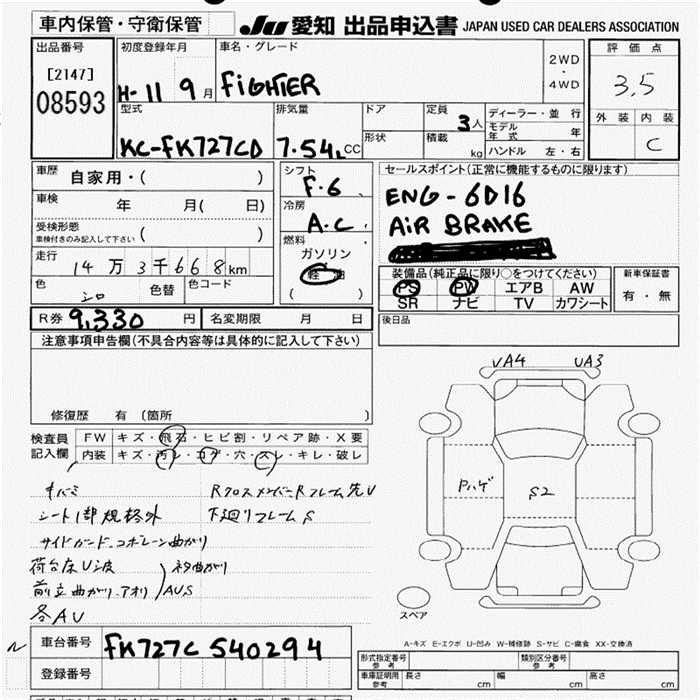 車内保管・守衛保管
JU 愛知 出品申込書 JAPAN USED CAR DEALERS ASSOCIATION
出品番号
[2147]
08593
初度登録年月
H-11 9月
車名・グレード
FiGHTER
2WD
・
4WD
評価点
3.5
外装 内装
C
型式
KC-FK727CD
排気量
7.54L CC
ドア
形状
定員
3人
積載
kg
ディーラー・並行
モデル年式 年
ハンドル 左・右
車歴
自家用・( )
車検
年 月( 日)
受検形態
車検付きのみ記入して下さい ( )
走行
14万3千668km
色
シロ
色替
色コード
シフト
F.6
冷房
A.C
燃料
ガソリン
軽油
( )
セールスポイント(正常に機能するものに限ります)
ENG-6D16
AiR BRAKE
装備品(純正品に限り○をつけてください)
PS PW エアB AW
SR ナビ TV カワシート
新車保証書
有・無
R券 9,330円
名変期限 月 日
後日品
注意事項申告欄(不具合内容等は具体的に記入して下さい)
修復歴 有 (箇所 )
検査員
記入欄
FW キズ・飛石・ヒビ割・リペア跡・X要
内装 キズ・汚レ・コゲ・穴・スレ・キレ・破レ
キバミ
シート1部規格外
サイドガード、コボレーン曲がり
荷台床U波
前立曲がり、アオリ
ネタ曲がり
AUS
各AU
RクロスメンバーRフレーム先U
下廻りフレームS
UA4 UA3
Pハゲ
S2
スペア
A-キズ E-エクボ U-凹み W-補修跡 S-サビ C-腐食 XX-交換済
車台番号
FK727C 540294
登録番号
形式指定番号
参考
類別区分番号
参考
車庫証明用
参考
長さ cm
幅 cm
高さ cm